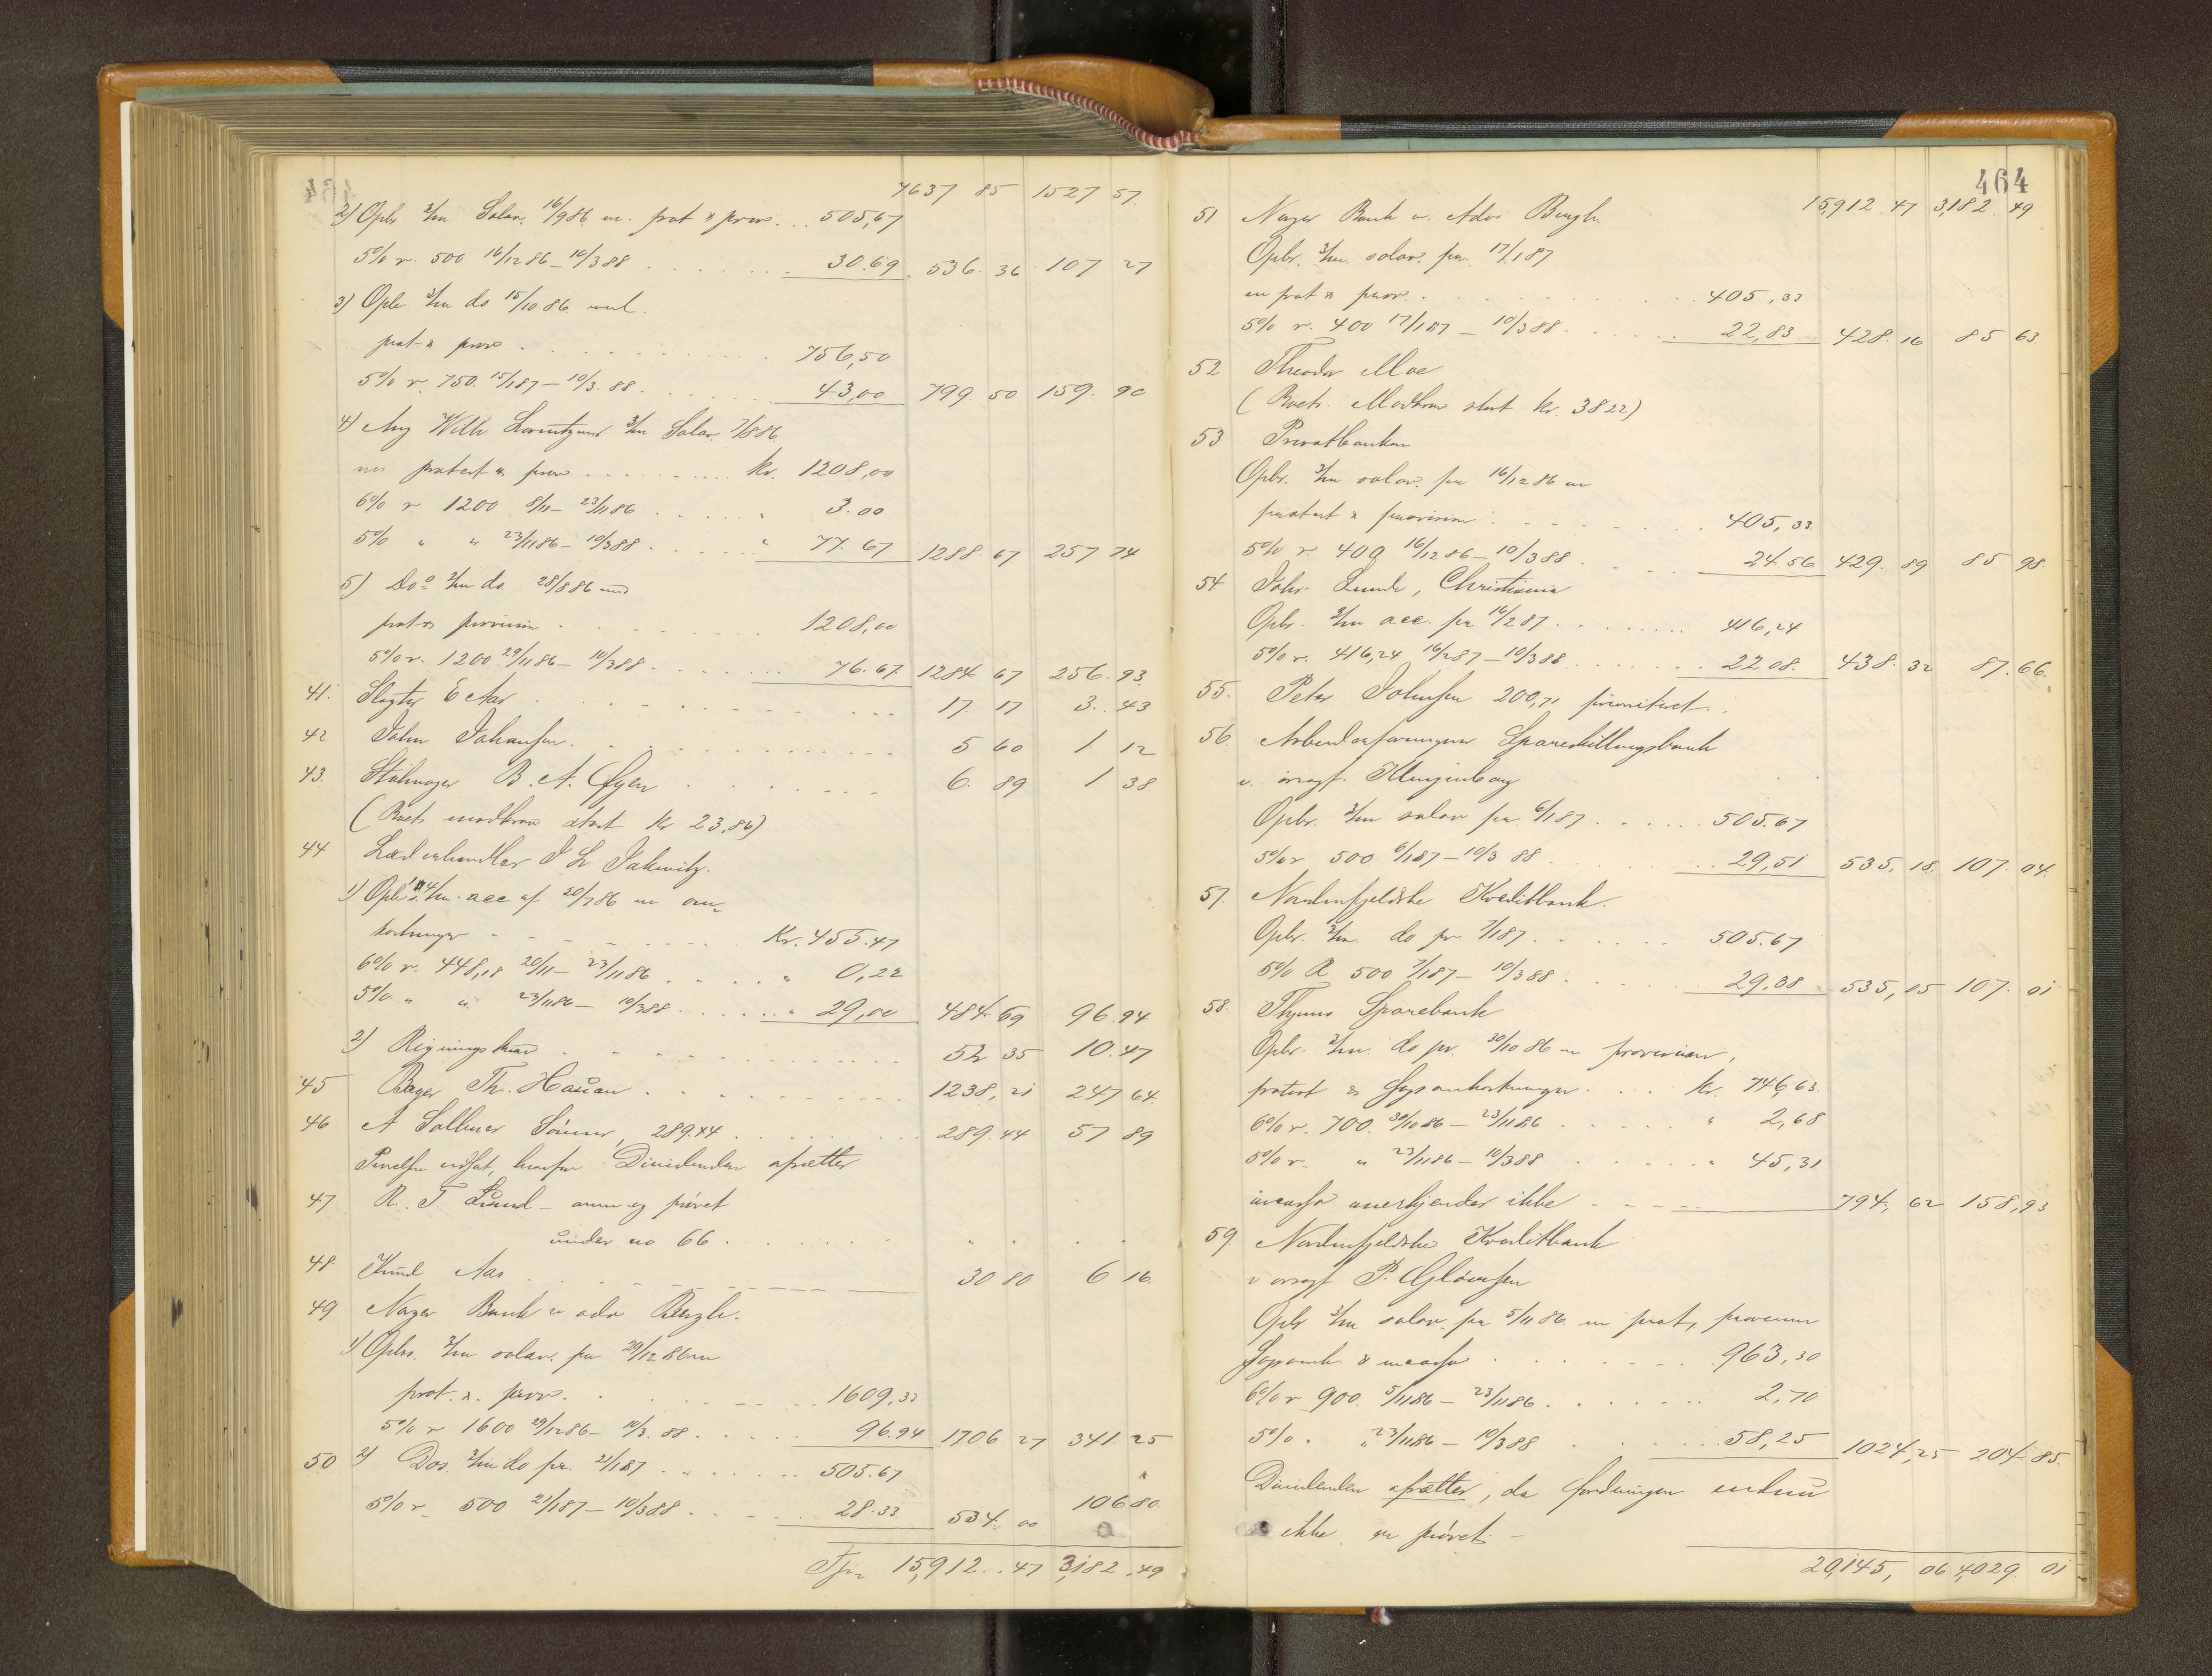 7637 85 1527 57.
2) Opbr 3/m Solav. 16/9 86 m. prot & prov. .. 505,67
5% r. 500 16/12 86 – 10/3 88 . . . . 30.69. 536. 36 107 27
3) Opbr 3/m do 15/10 86 mel.
prot & prov . . . . 756,50
5% r. 750. 15/1 87 – 10/3. 88. . . . 43,00 799 50 159. 90
4) Aug Wilh Lorentzens 3/m Solav. 7/8 86
m protest & prov . . . . kr. 1208,00
6% r 1200 8/11 – 23/11 86 . . . . „ 3.00
5% „ „ 23/11 86 – 10/3 88 . . . . „ 77.67 1288.67 257 74
5) Do 3/m do. 28/8 86 med
prot & provision . . . . 1208,00
5% r. 1200 29/11 86 – 10/3 88 . . . . 76.67. 1284. 67 256. 93.
41. Slagter E Aas . . . . 17. 17 3. 43
42 John Johansen. . . . . 5 60 1 12
43. B. A. Øyen . . . . 6. 89 1 38
(Boets modkrav stort kr 23,86)
44 Læderhandler J L Jakwitz.
1) Opbr's 4/m. acc af 20/7 86 m om-
kostninger . . . . Kr. 455.47
6% r. 448,18 20/11 – 23/11 86 . . . . „ 0,22
5% „ „ 23/11 86 – 10/3 88 . . . . „ 29,00 484.69 96.94
2) Regningskrav . . . . 52 35 10.47
45 Bager Th. Hauan . . . . 1238,21 247 64.
46 A Sollner Sönner, 289.44 . . . . 289.44 57 89
udsat, hvorfor Dividenden afsættes
47 R. T. Lund – anm og prövet
under no 66 . . . .
48. Knud Aas . . . . 30 80 6 16.
49 Norges Bank v adv Bugge.
1) Opbr. 3/m solav. pr 29/12 86 m
prot. & prov. . . . . 1609,33
5% r 1600 29/12 86 – 10/3. 88 . . . . 96.94 1706 27 341. 25
50 2) Dos. 3/m do pr. 21/1 87 . . . . 505.67
5% r 500 21/1 87 – 10/3 88 . . . . 28.33 534. 00 106 80.
Tspr 15,912. 47 3,182,49
464
15,912. 47 3,182. 49
51 Norges Bank v. Adv Bugge
Opbr. 3/m. solav. pr. 17/1 87
m prot & prov. . . . . 405,33
5% r. 400 17/1 87 – 10/3 88 . . . . 22,83 428. 16 85 63.
52 Theodor Moe
(Boets Modkrav stort kr. 3822)
53 Privatbanken
Opbr. 3/m solav. pr 16/12 86 m
protest & provision . . . . 405,33
5% r. 400 16/12 86 – 10/3 88 . . . . 24.56 429. 89 85 98.
54 Johs. Lunde, Christiania
Opbr. 3/m acc. pr. 16/2 87 . . . . 416,24
5% r. 416,24 16/2 87 – 10/3 88 . . . . 22 08. 438. 32 87. 66.
55. Peter Johnsen 200,71 prioriteret.
56. Arbeiderforeningens Spareskillingsbank
v. orsagf. Klingenberg
Opbr. 3/m solav pr 6/1 87 . . . . 505.67
5% r 500 6/1 87 – 10/3 88 . . . . 29,51 535, 18. 107. 04.
57. Nordenfjeldske Kreditbank.
Opbr. 3/m do pr 7/1 87 . . . . 505.67
5% R 500 7/1 87 – 10/3 88 . . . . 29.38 535,05 107. 01
58. Sparebank
Opbr. 3/m. do pr. 30/10 86 m provision,
protest & Sagsomkostninger . . . kr. 746,63.
6% r. 700. 30/10 86 – 23/11 86 . . . . „ 2,68
5% r. „ 23/11 86 – 10/3 88 . . . . „ 45,31
incasso anerkjendes ikke . . . . 794, 62 158,93
59 Nordenfjeldske Kreditbank
v orsagf P.
Opbr 3/m solav. pr 5/11 86. m prot, provision
Sagsomk & incasso . . . . 963,30
6% r 900. 5/11 86 – 23/11 86 . . . . 2,70
5% . „ 23/11 86 – 10/3 88 . . . . 58,25 1024,25 204.85.
Dividenden afsættes, da fordringen endnu
ikke er prövet –
20,145, 06 4,029. 01